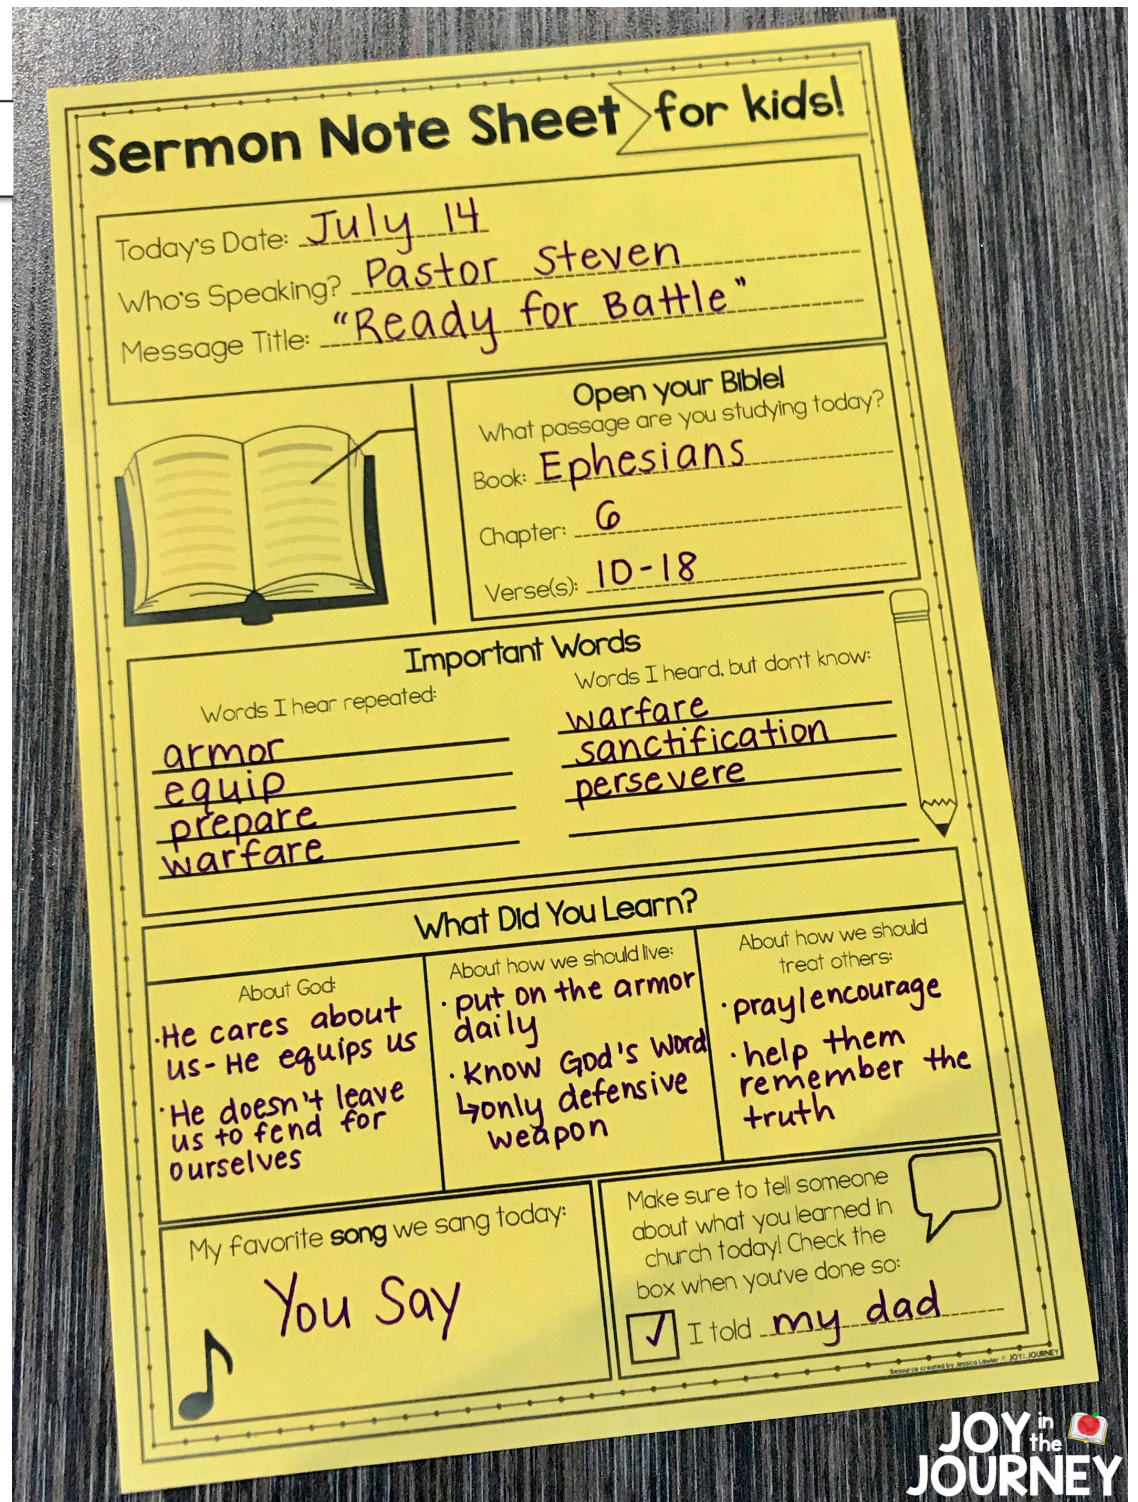 Sermon Note Sheet for kids!
Today's Date: July 14
Who's Speaking? Pastor Steven
Message Title: "Ready for Battle"
Open your Bible!
What passage are you studying today?
Book: Ephesians
Chapter: 6
Verse(s): 10-18
Important Words
Words I hear repeated:
armor
equip
prepare
warfare
Words I heard, but don't know:
warfare
sanctification
persevere
What Did You Learn?
About God:
·He cares about
us- He equips us
·He doesn't leave
us to fend for
ourselves
About how we should live:
· put on the armor
daily
· Know God's Word
↳only defensive
weapon
About how we should
treat others:
·pray/encourage
·help them
remember the
truth
My favorite song we sang today:
You Say
Make sure to tell someone
about what you learned in
church today! Check the
box when you've done so:
✓ I told my dad
Resource created by Jessica Lawler © JOY in the JOURNEY
JOY in the
JOURNEY